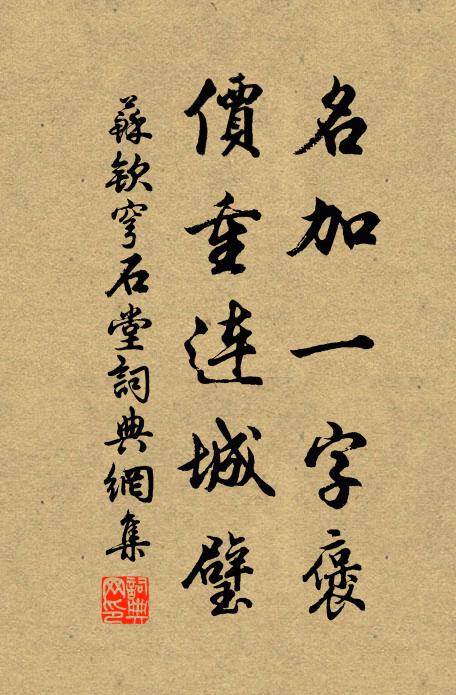 名加一字褒
價重連城璧
蘇欽穹石堂詞典網集
詞典網印